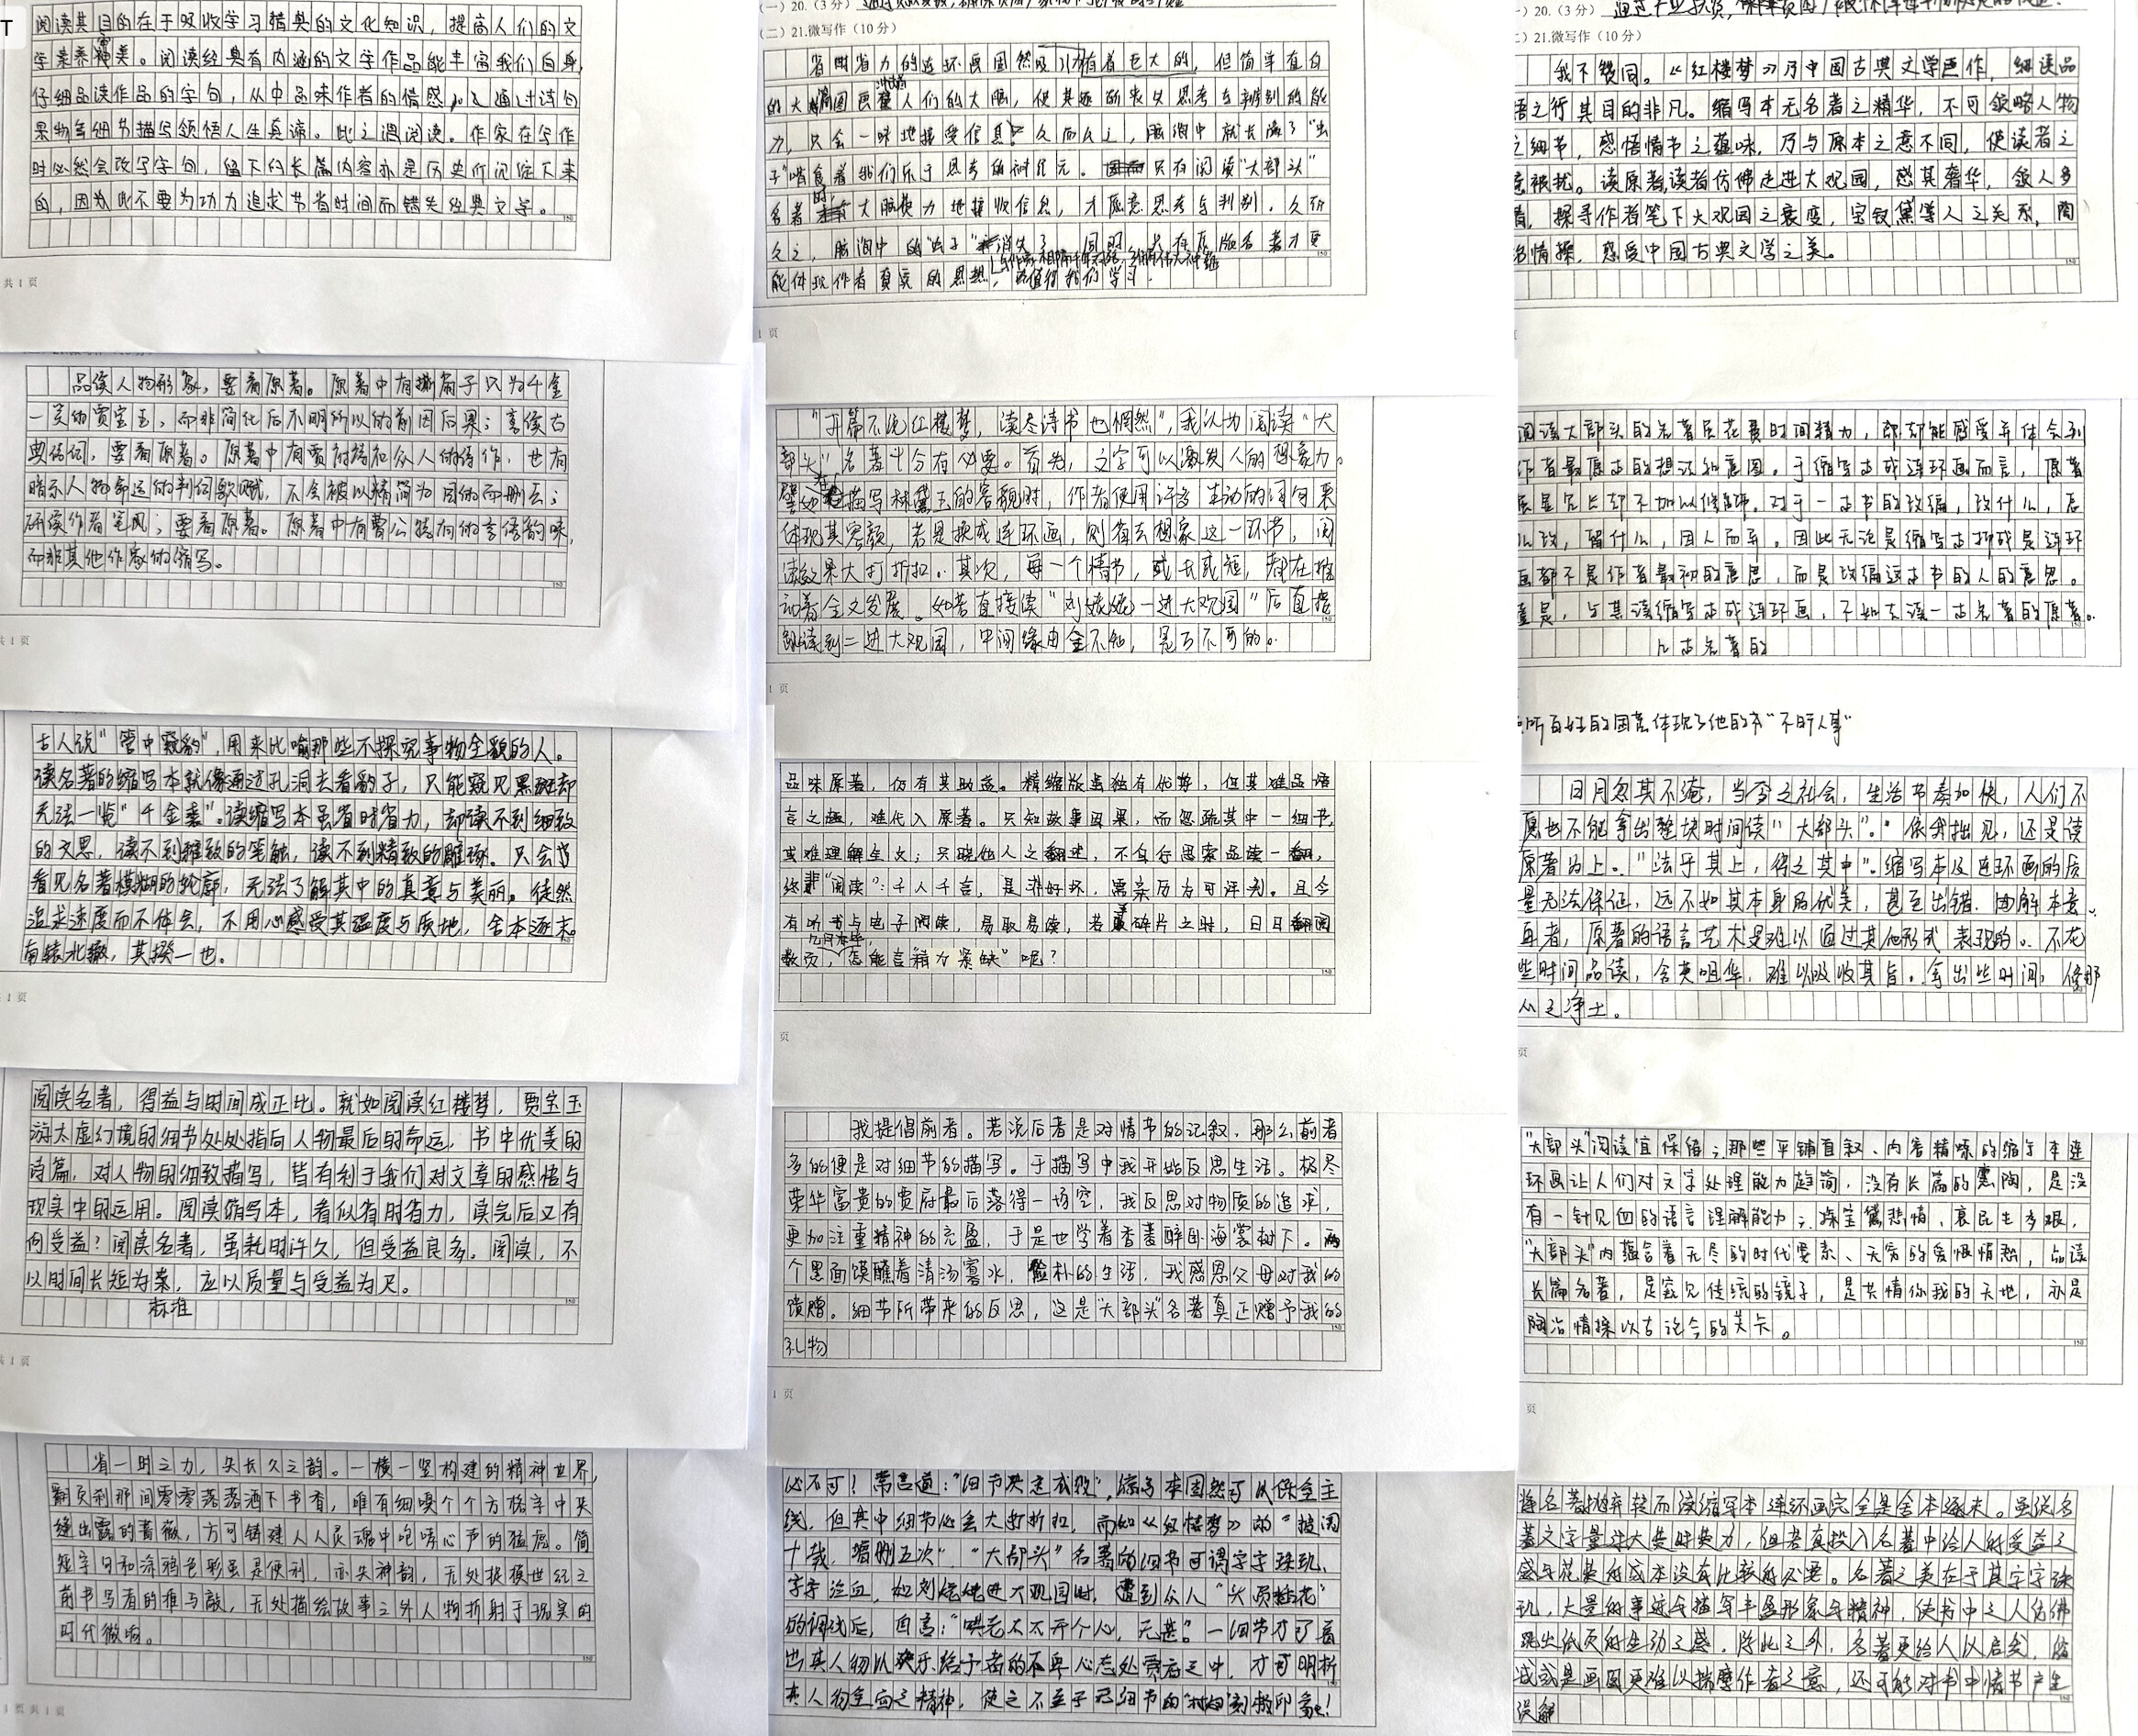 阅读其目的在于吸收学习精典的文化知识，提高人们的文
字素养审美。阅读经典有内涵的文学作品能丰富我们自身，
仔细品读作品的字句，从中品味作者的情感，以通过诗句
果物等细节描写领悟人生真谛。此之谓阅读。作家在写作
时必然会改写字句，留下的长篇内容亦是历史所沉淀下来
的，因为此不要为功力追求节省时间而错失经典文学。
共1页
品读人物形象，要看原著。原著中有撕扇子只为千金
一笑的贾宝玉，而非简化后不明所以的前因后果；享读古
典诗词，要看原著。原著中有贾府褚和众人的诗作，也有
暗示人物命运的判词歌赋，不会被以精简为由的而删去；
研读作者笔风，要看原著。原著中有曹公独有的言语韵味，
而非其他作家的缩写。
共1页
古人说“管中窥豹”，用来比喻那些不探究事物全貌的人。
读名著的缩写本就像通过孔洞去看豹子，只能窥见黑斑却
无法一览“千金裘”。读缩写本虽省时省力，却读不到细致
的文思，读不到雅致的笔触，读不到精致的雕琢。只会
看见名著模糊的轮廓，无法了解其中的真意与美丽。徒然
追求速度而不体会，不用心感受其温度与质地，舍本逐末。
南辕北辙，其揆一也。
1页
阅读名著，得益与时间成正比。就如阅读红楼梦，贾宝玉
游太虚幻境的细节处处指向人物最后的命运，书中优美的
诗篇，对人物的细致描写，皆有利于我们对文章的感悟与
现实中的运用。阅读缩写本，看似省时省力，读完后又有
何受益？阅读名著，虽耗时许久，但受益良多。阅读，不
以时间长短为案，应以质量与受益为尺。
标准
共1页
省一时之力，失长久之韵。一横一竖构建的精神世界，
翻页刹那间零零落落洒下书香，唯有细嗅个个方格字中夹
缝出露的蔷薇，方可铸建人人灵魂中咆哮心声的猛虎。简
短字句和涂鸦色彩虽是便利，亦失神韵，无处捉摸世纪之
前书写者的推与敲，无处描绘故事之外人物折射于现实的
时代微响。
1页共1页
（一）20.（3分）
（二）21.微写作（10分）
省时省力的连环画固然吸引力有着巨大的，但简单直白
的大幅图画 人们的大脑，使其逐渐丧失思考与辨别的能
力，只会一味地接受信息，久而久之，脑海中就长满了“虫
子”啃食着我们乐于思考的神经元。只有阅读“大部头”
名著时，大脑使力地接收信息，才愿意思考与判别。久而
久之，脑海中的“虫子”消失了，同时，只有原版名著才更
能体现作者真实的思想，值得我们学习。
1页
“开篇不说红楼梦，读尽诗书也惘然”，我认为阅读“大
部头”名著十分有必要。首先，文字可以激发人的想象力。
譬如在描写林黛玉的容貌时，作者使用许多生动的词句来
体现其容颜，若是换成连环画，则省去想象这一环节，阅
读效果大打折扣。其次，每一个情节，或长或短，都在推
动着全文发展。如若直接读“刘姥姥一进大观园”后直接
跳读到二进大观园，中间缘由全不知，是万不可的。
1页
品味原著，仍有其助益。精缩版虽独有优势，但其难品语
言之趣，难代入原著。只知故事因果，而忽疏其中一细节，
或难理解全文；只晓他人之翻述，不自行思索品读一翻，
终非“阅读”：千人千言，是非好坏，需亲历方可评判。且今
有听书与电子阅读，易取易读，若夏碎片之时，日日翻阅
数页，几月本毕，怎能言精力紧缺”呢？
页
我提倡前者。若说后者是对情节的记叙，那么前者
多的便是对细节的描写。于描写中我开始反思生活。极尽
荣华富贵的贾府最后落得一场空，我反思对物质的追求，
更加注重精神的充盈，于是也学着香菱醉卧海棠树下。两
个黑面馍蘸着清汤寡水，俭朴的生活，我感恩父母对我的
馈赠。细节所带来的反思，这是“大部头”名著真正赠予我的
礼物
1页
必不可！常言道：“细节决定成败”，缩写本固然可以保全主
线，但其中细节必会大打折扣，而如《红楼梦》的“披阅
十载，增删五次”，“大部头”名著的细节可谓字字珠玑、
字字泣血，如刘姥姥进大观园时，遭到众人“头顶插花”
的调试后，回言：“哄老太太开个心，无甚。”一细节才可看
出其人物以快乐给予者的不卑心态处贾府之中，才可明析
其人物全面之精神，使之不至于无细节的“ ”刻板印象！
（一）20.（3分）
（二）21.微写作（10分）
我不赞同。《红楼梦》乃中国古典文学巨作，细读品
悟之行其目的非凡。缩写本无名著之精华，不可领略人物
之细节，感悟情节之蕴味，乃与原本之意不同，使读者之
意被扰。读原著，读者仿佛走进大观园，感其奢华，叙人多
着，探寻作者笔下大观园之衰变，宝钗黛等人之关系，陶
冶情操，感受中国古典文学之美。
阅读大部头的名著虽花费时间精力，即却能感受并体会到
作者最原本的想法和意图。于缩写本或连环画而言，原著
虽是冗长却不加以修饰。对于一本书的改编，改什么，怎
么改，留什么，因人而异。因此无论是缩写本抑或是连环
画都不是作者最初的意思，而是改编这本书的人的意思。
于是，与其读缩写本或连环画，不如去读一本名著的原著。
几本名著的
所百姓的困苦体现了他的才“不明人事”
日月忽其不淹，当今之社会，生活节奏加快，人们不
愿也不能拿出整块时间读“大部头”。依我拙见，还是读
原著为上。“法乎其上，得之其中”。缩写本及连环画的质
量无法保证，远不如其本身的优美，甚至出错，曲解本意。
再者，原著的语言艺术是难以通过其他形式表现的。不花
些时间品读，含英咀华，难以吸收其旨。拿出些时间，修那
心之净土。
页
“大部头”阅读宜保留；那些平铺直叙、内容精嗦的缩写本连
环画让人们对文字处理能力趋简，没有长篇的熏陶，是没
有一针见血的语言理解能力；探宝黛悲情、哀民生多艰，
“大部头”内蕴含着无尽的时代要素、无穷的爱恨情愁，品读
长篇名著，是窥见传统的镜子，是共情你我的天地，亦是
陶冶情操以古论今的关卡。
页
将名著抛弃转而读缩写本连环画完全是舍本逐末。虽说名
著文字量过大费时费力，但若真投入名著中给人的受益之
感与花费的成本没有比较的必要。名著之美在于其字字珠
玑，大量的事迹与描写丰盈形象与精神，使书中之人仿佛
跳出纸页的生动之感。除此之外，名著更给人以启发，缩
或是画图更难以揣摩作者之意，还可能对书中情节产生
误解